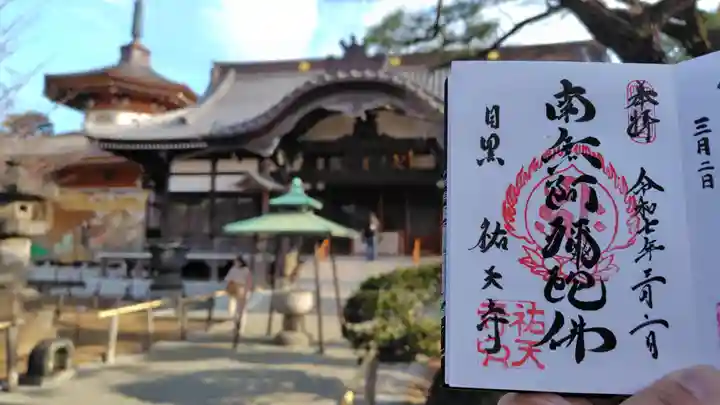 奉拝
令和七年三月二日
南無阿彌陀佛
目黒 祐天寺
祐天
寺印
三月二日